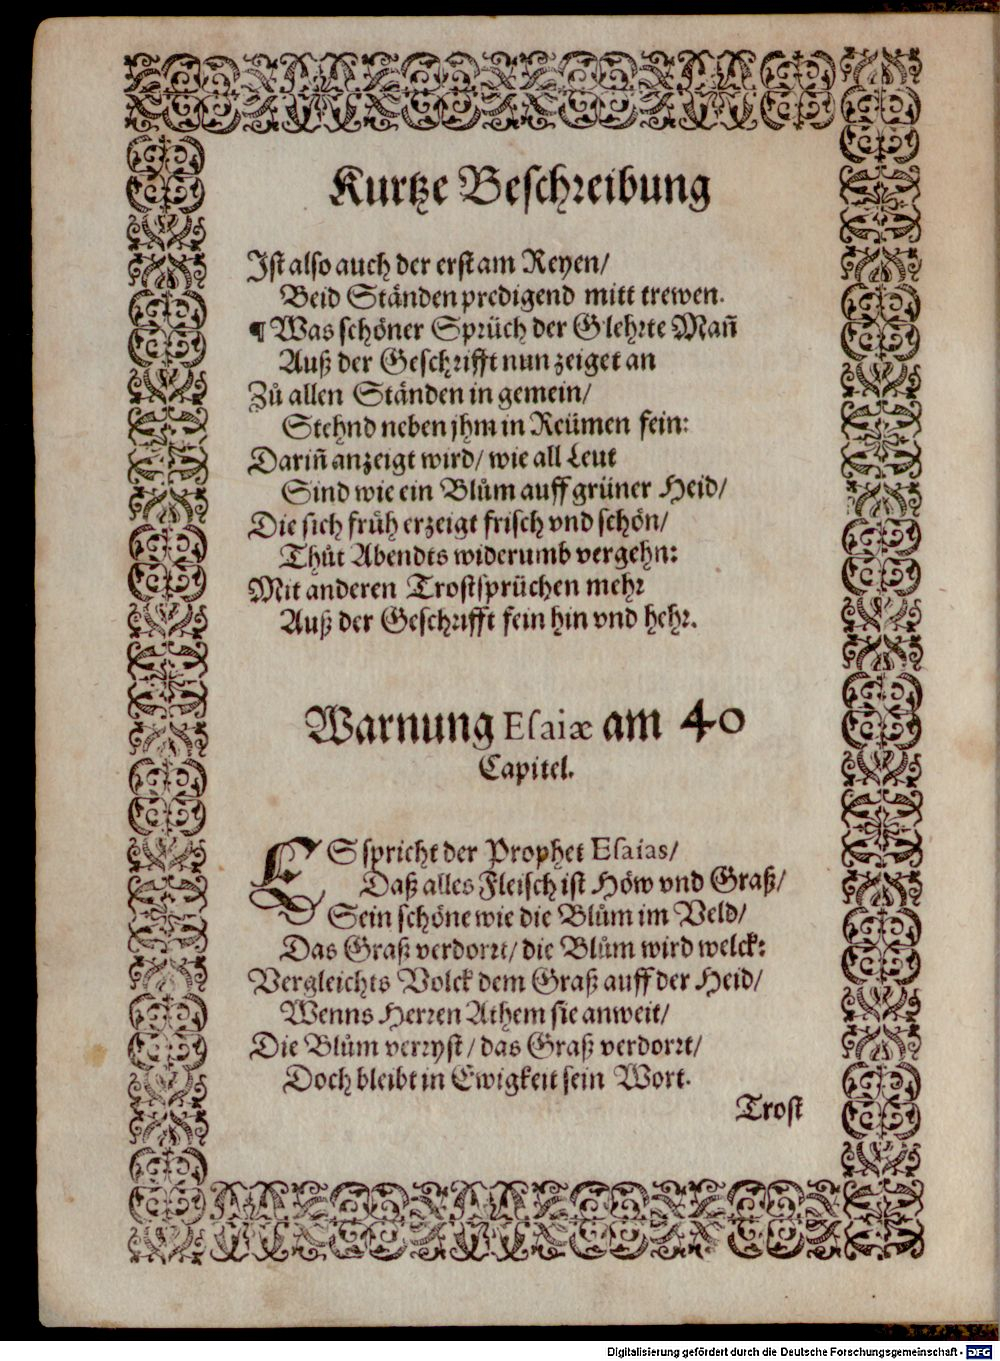 Kurtze Beschreibung
Ist also auch der erst am Reyen/
Beid Ständen predigend mitt trewen.
¶ Was schöner Sprüch der Glehrte Mañ
Auß der Geschrifft nun zeiget an
Zů allen Ständen in gemein/
Stehnd neben jhm in Reümen fein:
Dariñ anzeigt wird/ wie all Leut
Sind wie ein Blům auff grüner Heid/
Die sich früh erzeigt frisch vnd schön/
Thůt Abendts widerumb vergehn:
Mit anderen Trostsprüchen mehr
Auß der Geschrifft fein hin vnd hehr.
Warnung Esaiæ am 40
Capitel.
ES spricht der Prophet Esaias/
Daß alles Fleisch ist Höw vnd Graß/
Sein schöne wie die Blům im Veld/
Das Graß verdorrt/ die Blům wird welck:
Vergleichts Volck dem Graß auff der Heid/
Wenns Herren Athem sie anweit/
Die Blům verryst/ das Graß verdorrt/
Doch bleibt in Ewigkeit sein Wort.
Trost
Digitalisierung gefördert durch die Deutsche Forschungsgemeinschaft - DFG